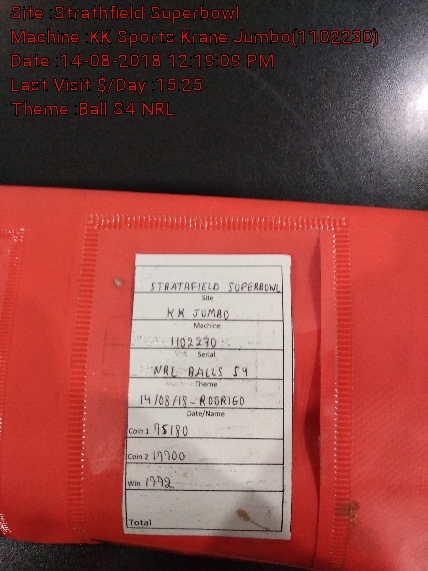 Site :Strathfield Superbowl
Machine :KK Sports Krane Jumbo(1102230)
Date :14-08-2018 12:19:09 PM
Last Visit $/Day :15.25
Theme :Ball S4 NRL
STRATAFIELD SUPERBOWL
Site
KK JUMBO
Machine
1102230
Serial
NRL BALLS S4
Theme
14/08/18-RODRIGO
Date/Name
Coin 1 95180
Coin 2 19900
Win 1992
Total